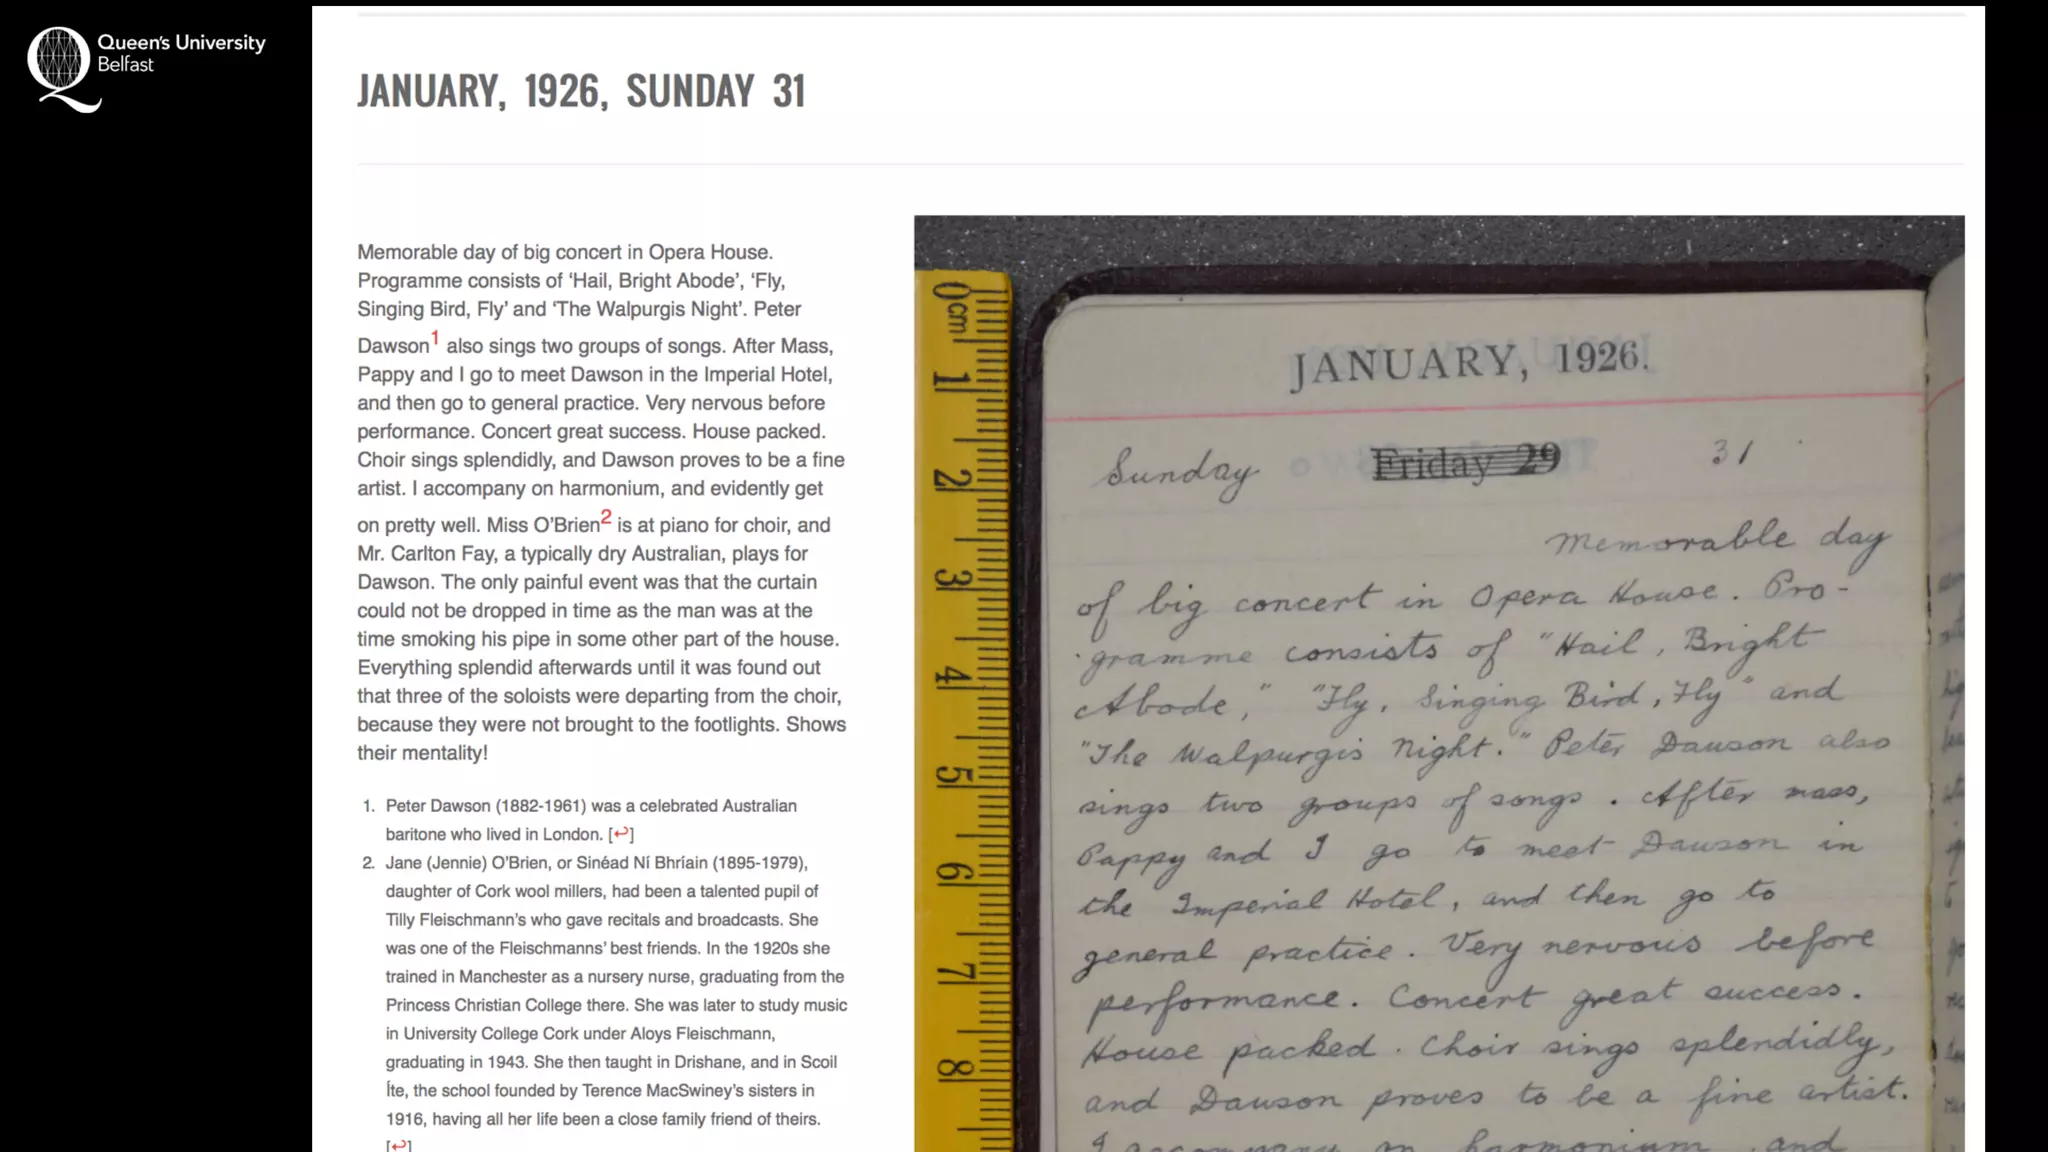 Queen's University
Belfast
JANUARY, 1926, SUNDAY 31
Memorable day of big concert in Opera House.
Programme consists of ‘Hail, Bright Abode’, ‘Fly,
Singing Bird, Fly’ and ‘The Walpurgis Night’. Peter
Dawson1 also sings two groups of songs. After Mass,
Pappy and I go to meet Dawson in the Imperial Hotel,
and then go to general practice. Very nervous before
performance. Concert great success. House packed.
Choir sings splendidly, and Dawson proves to be a fine
artist. I accompany on harmonium, and evidently get
on pretty well. Miss O’Brien2 is at piano for choir, and
Mr. Carlton Fay, a typically dry Australian, plays for
Dawson. The only painful event was that the curtain
could not be dropped in time as the man was at the
time smoking his pipe in some other part of the house.
Everything splendid afterwards until it was found out
that three of the soloists were departing from the choir,
because they were not brought to the footlights. Shows
their mentality!
1. Peter Dawson (1882-1961) was a celebrated Australian
baritone who lived in London. [↩]
2. Jane (Jennie) O’Brien, or Sinéad Ní Bhríain (1895-1979),
daughter of Cork wool millers, had been a talented pupil of
Tilly Fleischmann’s who gave recitals and broadcasts. She
was one of the Fleischmanns’ best friends. In the 1920s she
trained in Manchester as a nursery nurse, graduating from the
Princess Christian College there. She was later to study music
in University College Cork under Aloys Fleischmann,
graduating in 1943. She then taught in Drishane, and in Scoil
Íte, the school founded by Terence MacSwiney’s sisters in
1916, having all her life been a close family friend of theirs.
[↩]
0cm
1
2
3
4
5
6
7
8
JANUARY, 1926.
Sunday Friday 29 31
Memorable day
of big concert in Opera House. Pro-
gramme consists of "Hail, Bright
Abode," "Fly, Singing Bird, Fly" and
"The Walpurgis Night." Peter Dawson also
sings two groups of songs. After mass,
Pappy and I go to meet Dawson in
the Imperial Hotel, and then go to
general practice. Very nervous before
performance. Concert great success.
House packed. Choir sings splendidly,
and Dawson proves to be a fine artist.
I accompany on harmonium, and